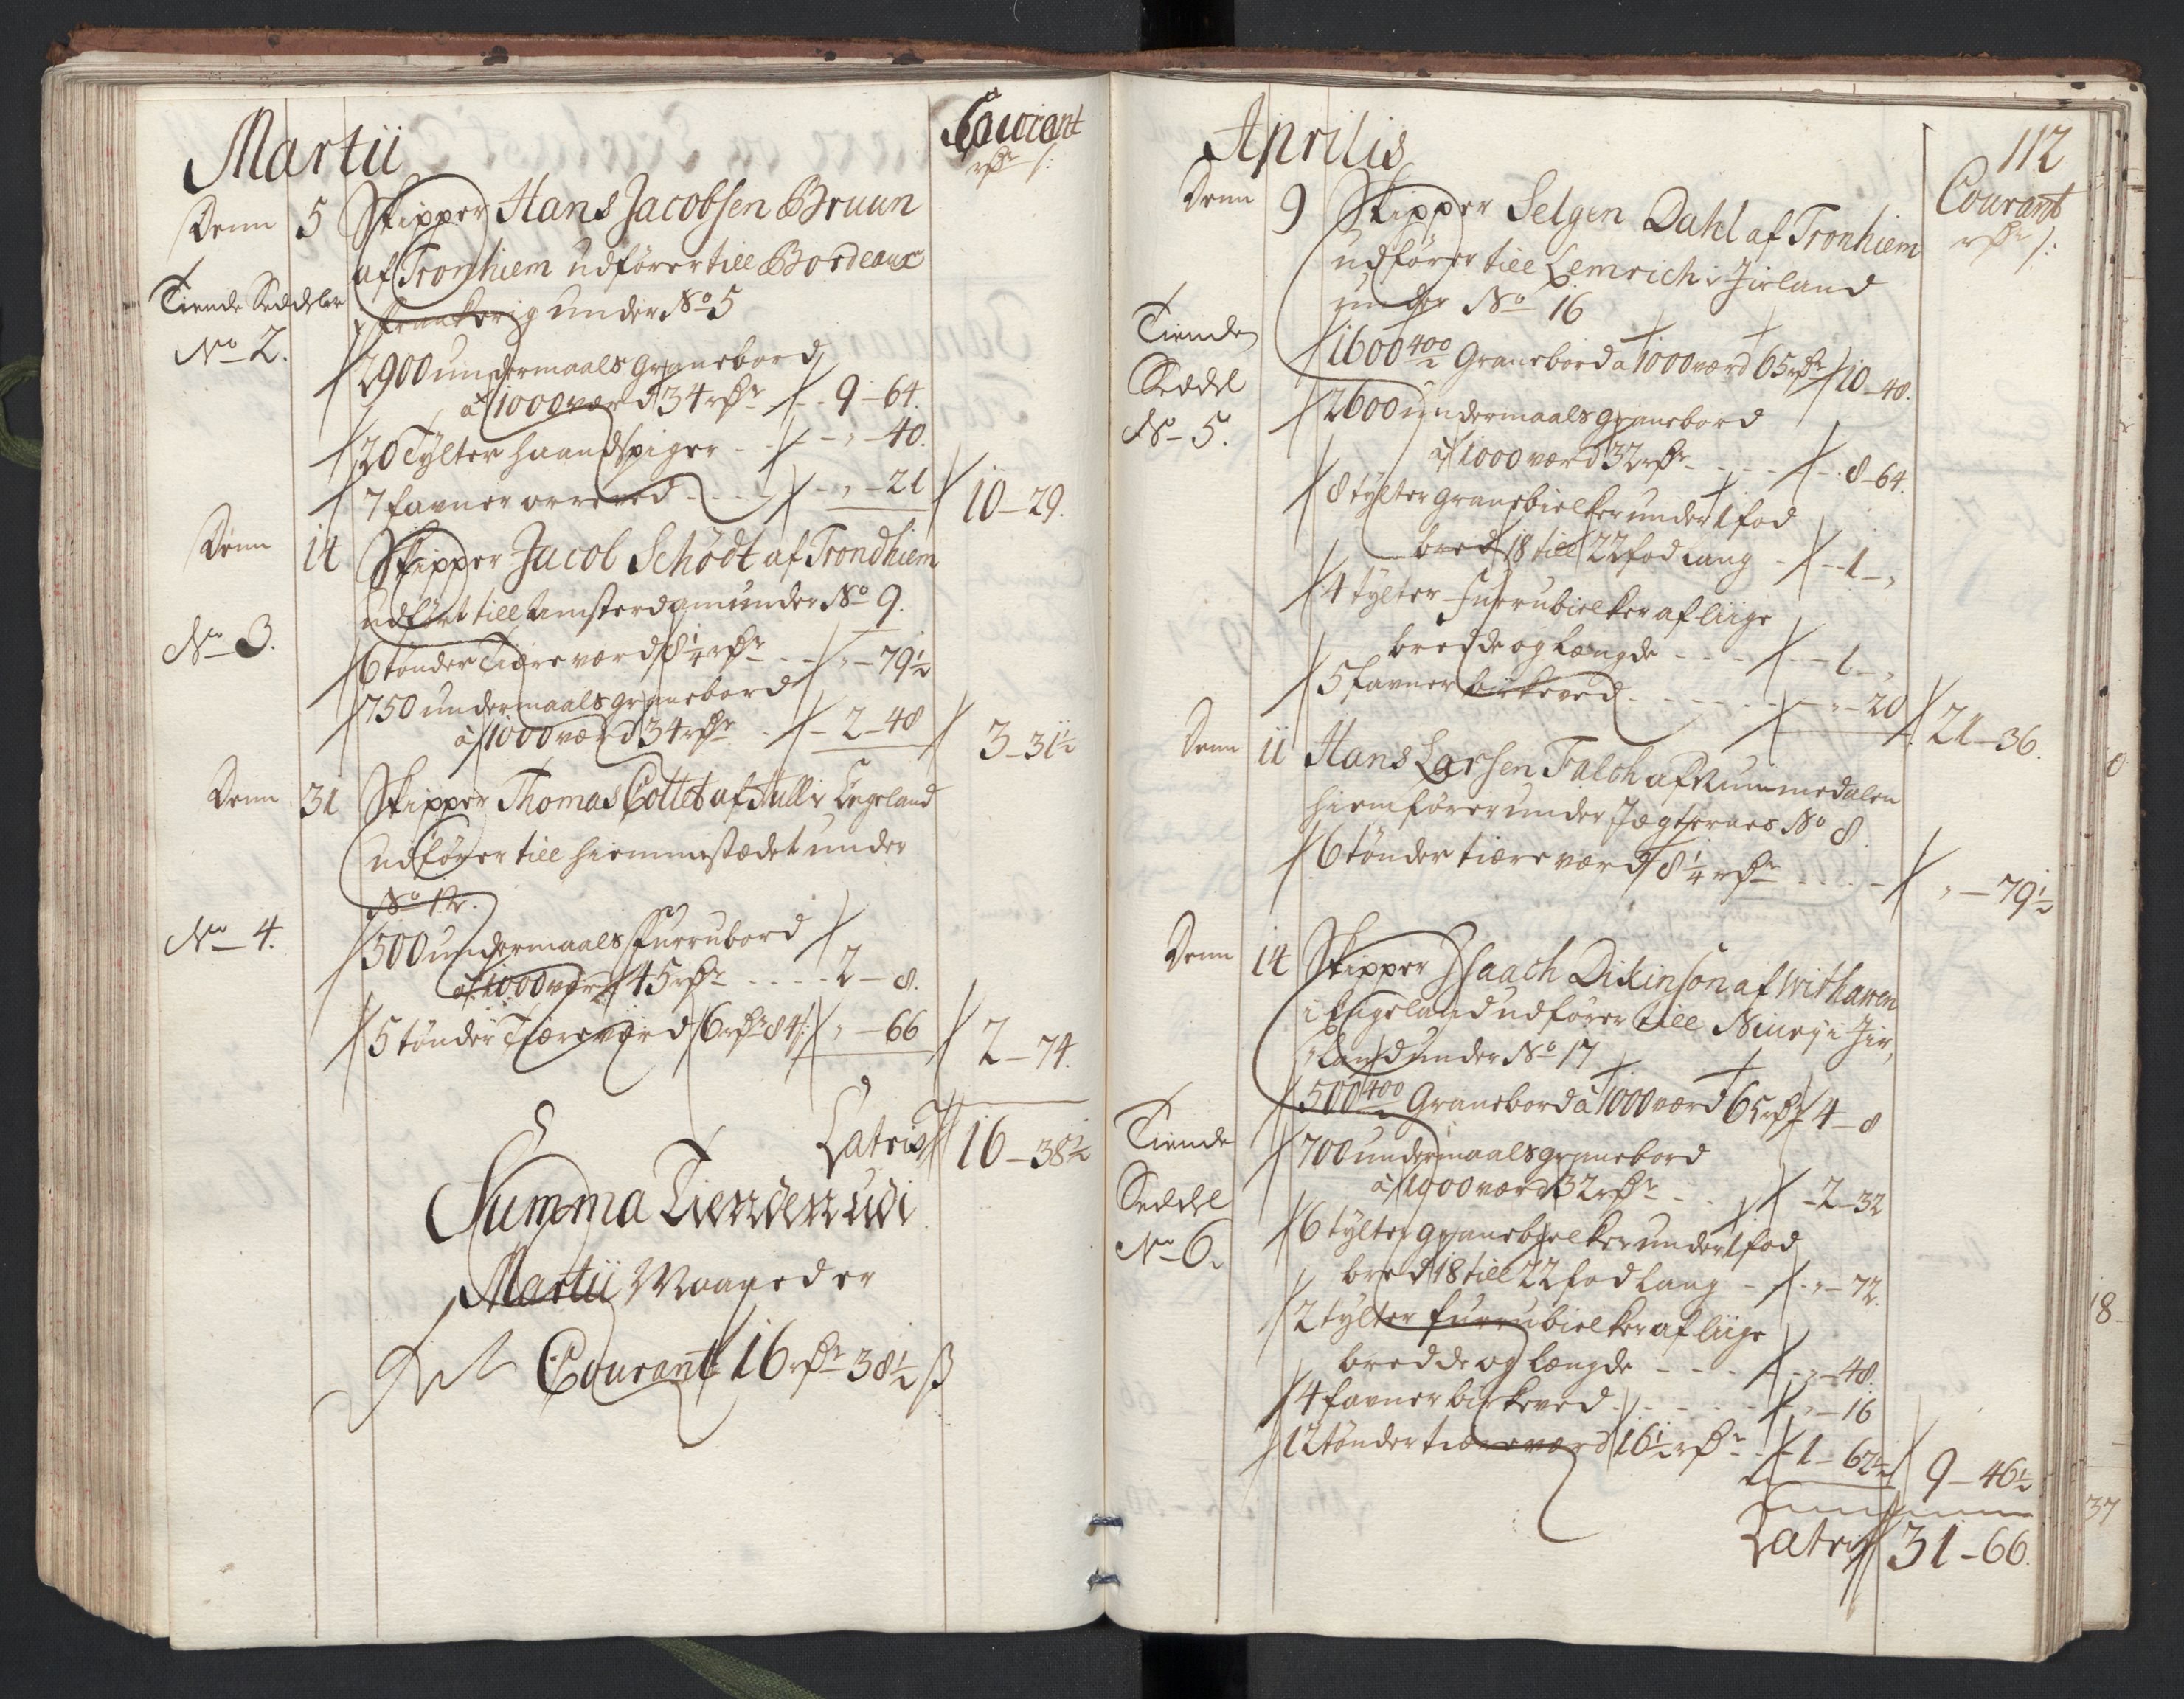 Martii
Courant
rdr ß:
Denn 5 Skipper Hans Jacobsen Bruun
af Tronhiem udfører till Bordeaux
Tiende Seddeler
i Franckerig under No 5
No 2.
2900 undermaals granebord
à 1000 værd 34 rdr - 9 - 64.
20 Tylter haandspiger - " - 40.
7 favner orreved - " - 21 10 - 29.
Denn 14 Skipper Jacob Schødt af Trondhiem
udført till Amsterdam under No 9.
No 3.
6 tønder Tiære værd 8 1/4 rdr - " - 79 1/2
750 undermaals granebord
à 1000 værd 34 rdr - 2 - 48 3 - 31 1/2
Denn 31 Skipper Thomas Cottet af Hull i Engeland
udfører till hiemmestædet under
No 12.
No 4.
500 undermaals Furrubord
à 1000 værd 45 rdr - 2 - 8.
5 tønder Tiære værd 6 rdr 84 ß: " - 66 2 - 74.
Lateris 16 - 38 1/2
Summa Tienden udi
Martii Maaned er
Courant 16 rdr 38 1/2 ß
112
Aprilis
Courant
rdr ß:
Denn 9 Skipper Selgen Dahl af Tronhiem
udfører till Lemrich i Jirland
under No 16
Tiende
Seddel
No 5.
1600 400/2 Granebord a 1000 værd 65 rdr 10 - 40.
2600 undermaals granebord
à 1000 værd 32 rdr - 8 - 64.
8 tylter granebielker under 1 fod
bred 18 till 22 fod lang - 1 - "
4 tylter Furrubielker af liige
bredde og længde - 1 - "
5 favner birkeved - " - 20 21 - 36.
Denn 11 Hans Larsen Falch af Nummedalen
hiemfører under Jægternes No 8.
6 tønder tiære værd 8 1/4 rdr " - 79 1/2
Denn 14 Skipper Jsaach Dikinson af Withaven
i Engeland udfører till Niury i Jir,
land under No 17
Tiende
Seddel
No 6.
500 400/2 Granebord à 1000 værd 65 rdr 4 - 8
700 undermaals granebord
à 1000 værd 32 rdr - 2 - 32
6 tylter granebielker under 1 fod
bred 18 till 22 fod lang - " - 72.
2 tylter furrubielker af liige
bredde og længde - " - 48.
4 favner birkeved " - 16
12 tønder tiære værd 16 1/2 rdr - 1 - 62 1/2 9 - 46 1/2
Lateris 31 - 66.